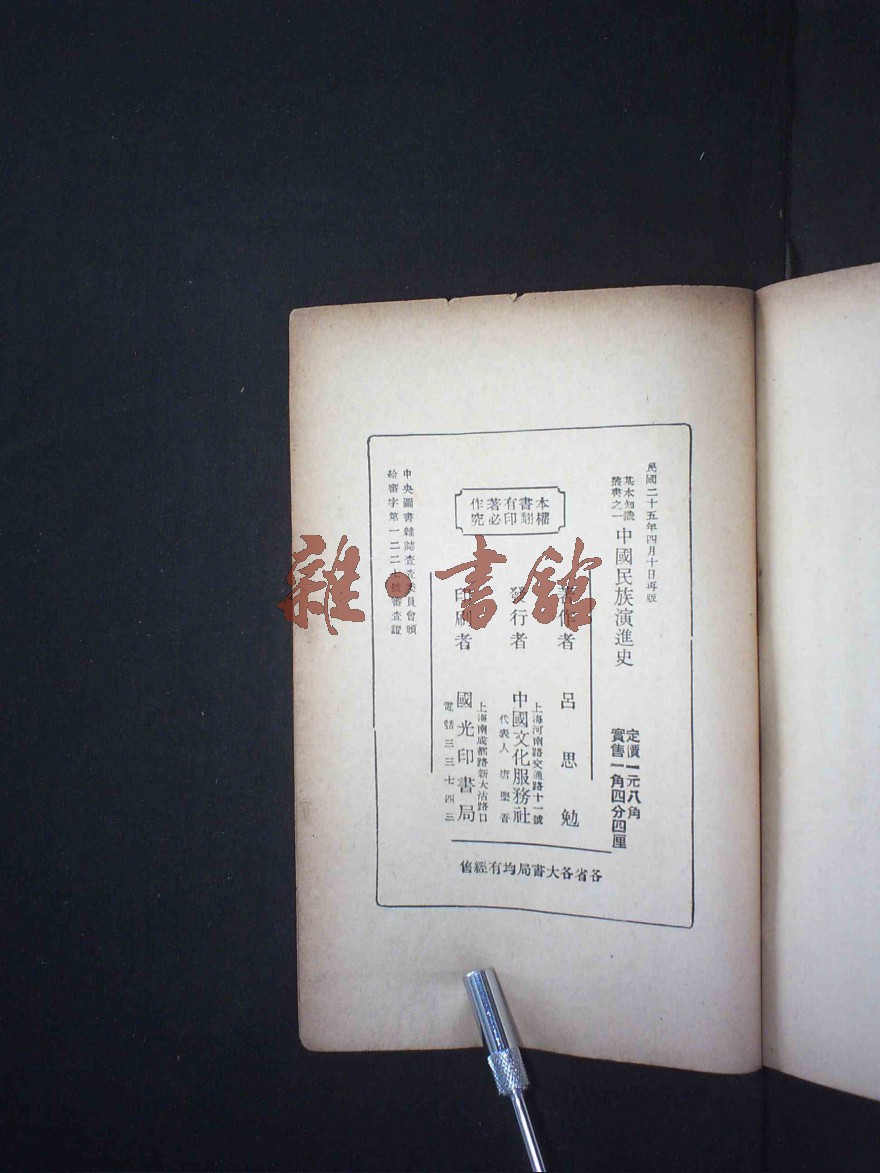 民國二十五年四月十日再版
基本知識
叢書之一
中國民族演進史
定價一元八角
實售一角四分四厘
本書有著作
權翻印必究
著作者 呂思勉
發行者 中國文化服務社
上海河南路交通路十一號
代表人 唐堅吾
印刷者 國光印書局
上海南成都路新大沽路口
電話三三七四三
中央圖書雜誌審查委員會頒
給審字第一二二七號審查證
各省各大書局均有經售
雜·書館